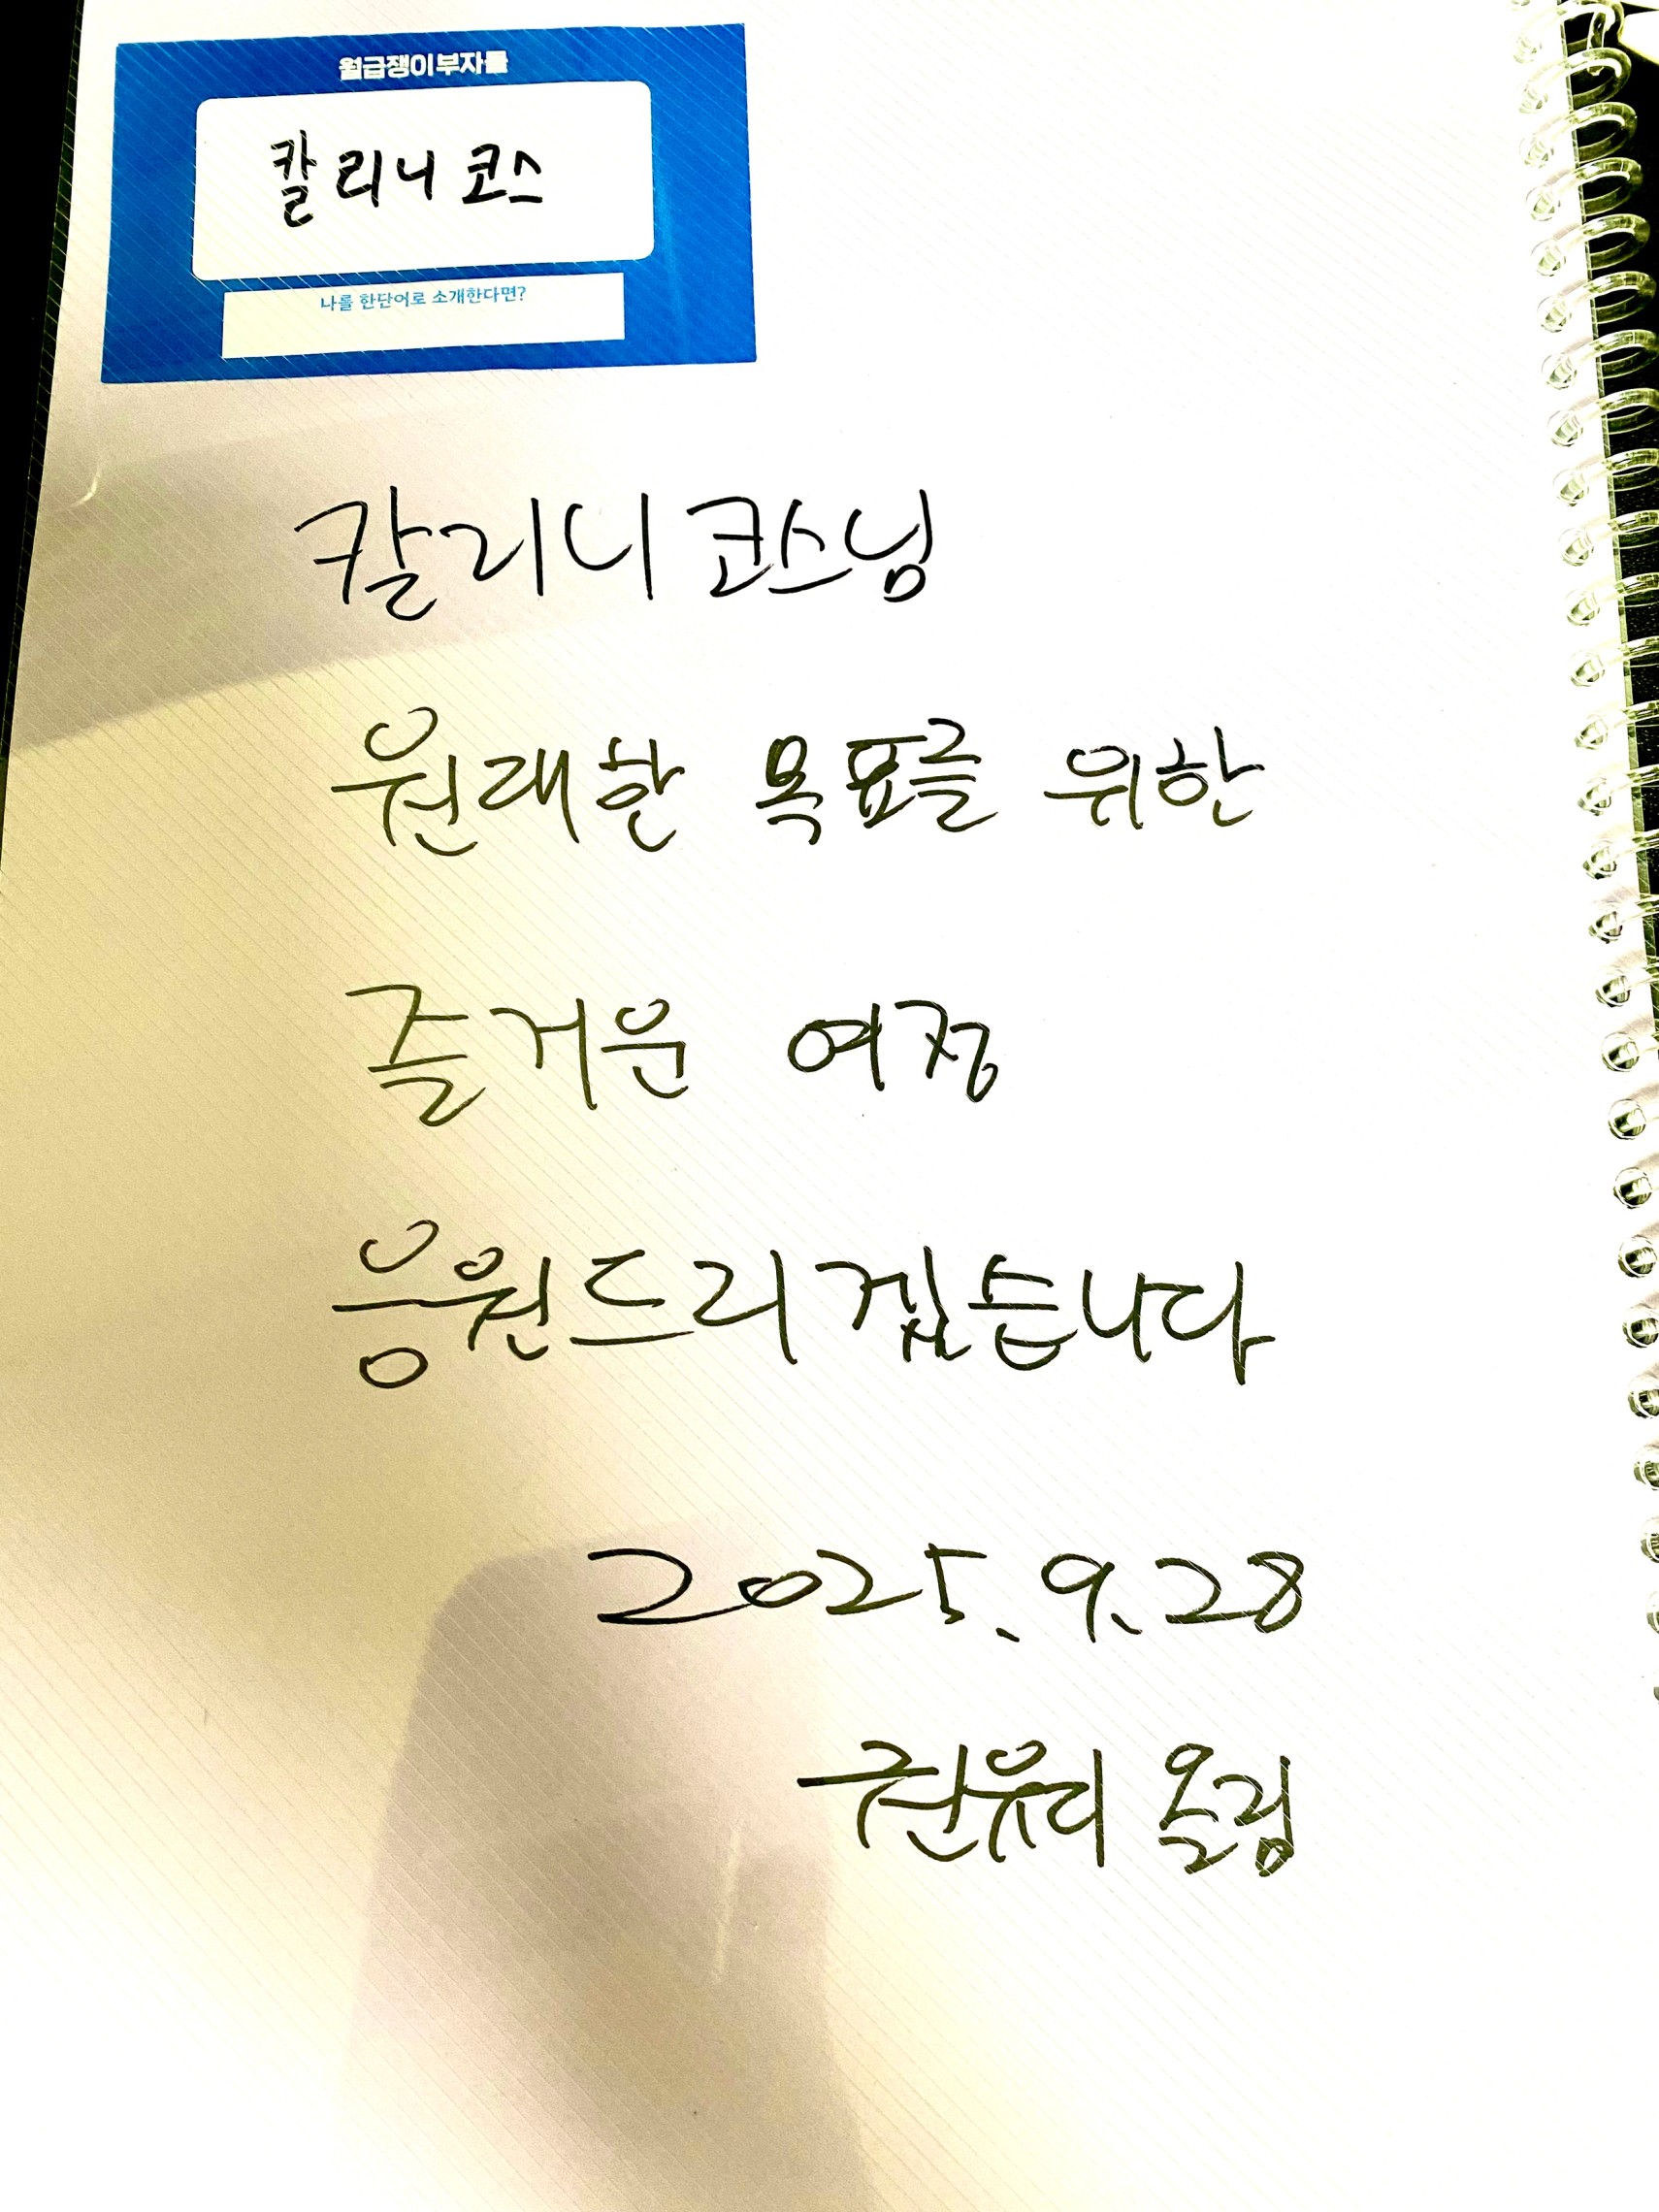 월급쟁이부자들
칼리니코스
나를 한단어로 소개한다면?
칼리니코스님
원대한 목표를 위한
즐거운 여정
응원드리겠습니다
2025. 9. 28
권유디 올림